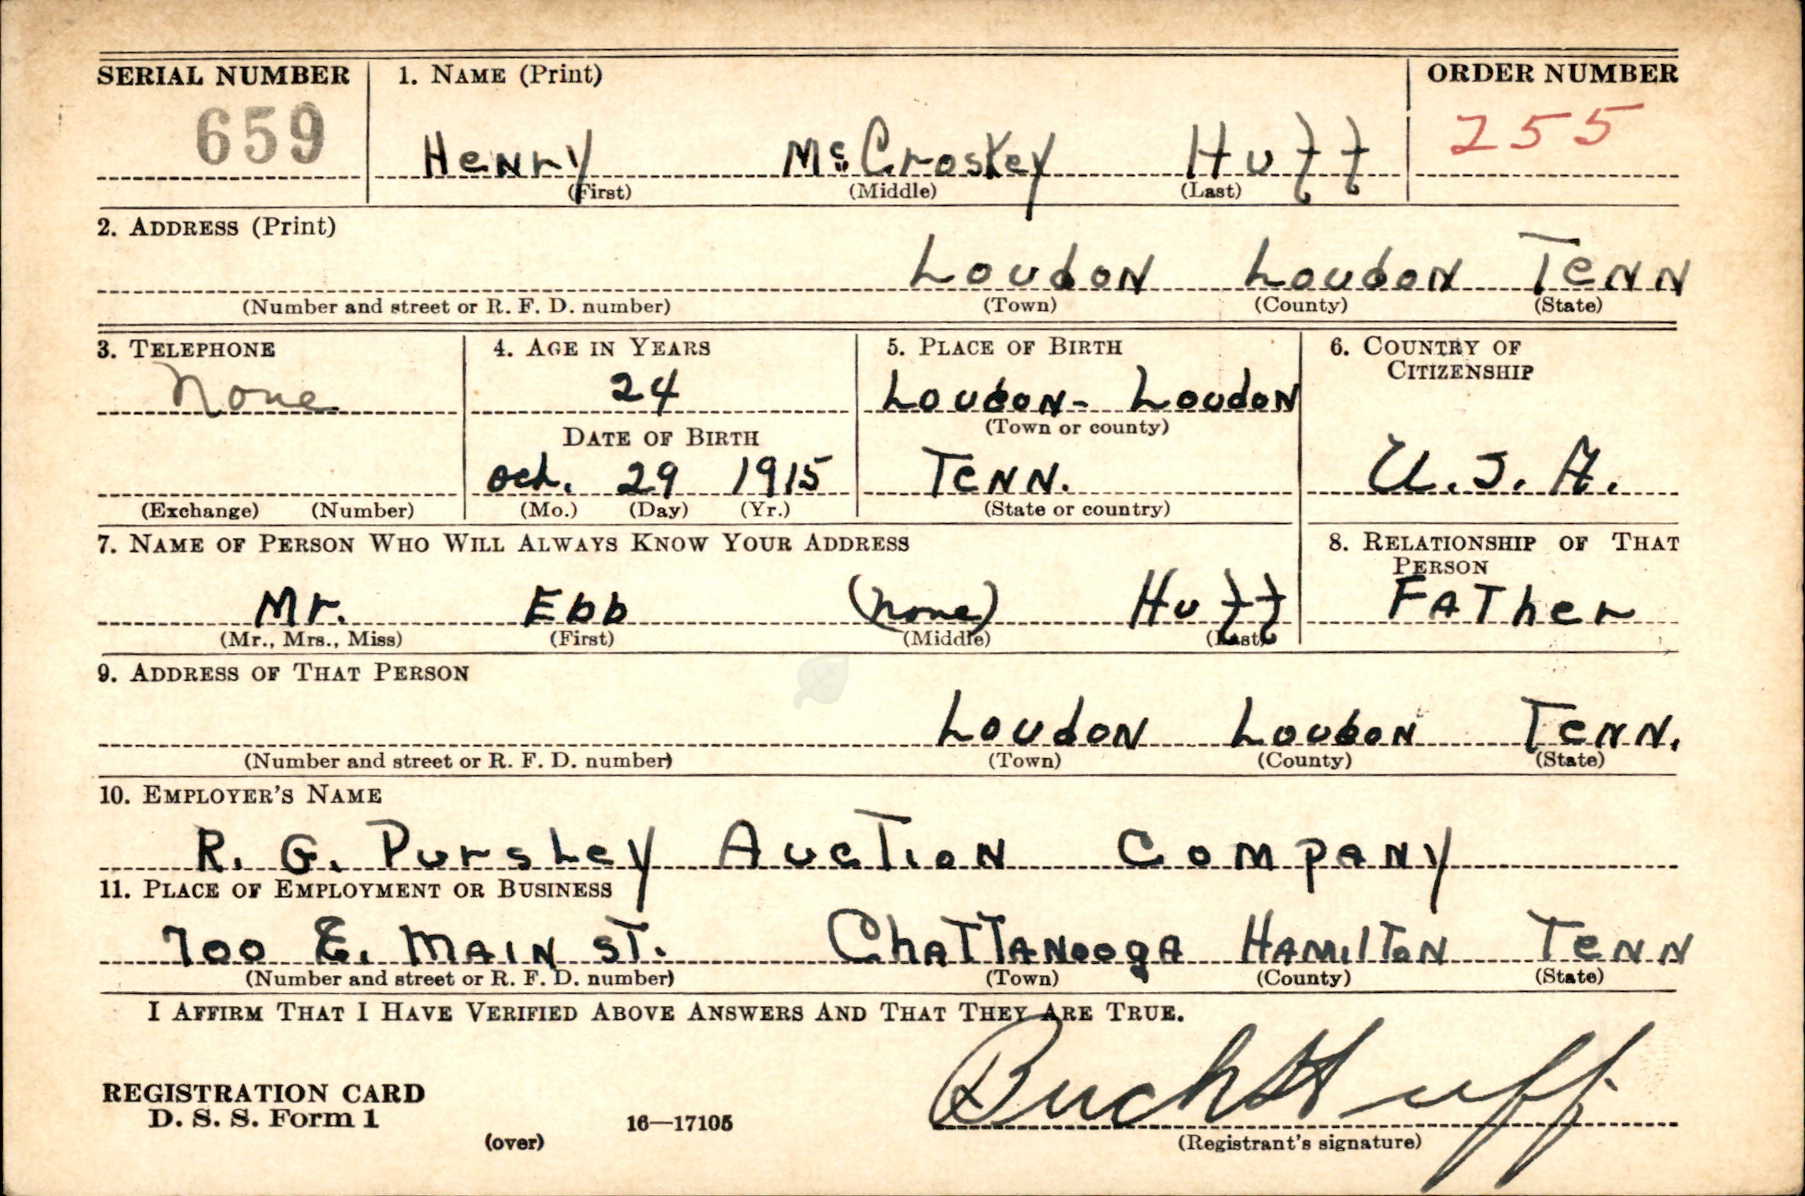 SERIAL NUMBER 1. NAME (Print) ORDER NUMBER
659 Henry McCroskey Huff 255
(First) (Middle) (Last)
2. ADDRESS (Print)
Loudon Loudon Tenn
(Number and street or R. F. D. number) (Town) (County) (State)
3. TELEPHONE 4. AGE IN YEARS 5. PLACE OF BIRTH 6. COUNTRY OF
CITIZENSHIP
None 24 Loudon - Loudon
DATE OF BIRTH (Town or county)
Oct. 29 1915 Tenn. U.S.A.
(Exchange) (Number) (Mo.) (Day) (Yr.) (State or country)
7. NAME OF PERSON WHO WILL ALWAYS KNOW YOUR ADDRESS 8. RELATIONSHIP OF THAT
PERSON
Mr. Ebb (none) Huff Father
(Mr., Mrs., Miss) (First) (Middle) (Last)
9. ADDRESS OF THAT PERSON
Loudon Loudon Tenn.
(Number and street or R. F. D. number) (Town) (County) (State)
10. EMPLOYER'S NAME
R. G. Pursley Auction Company
11. PLACE OF EMPLOYMENT OR BUSINESS
700 E. Main St. Chattanooga Hamilton Tenn
(Number and street or R. F. D. number) (Town) (County) (State)
I AFFIRM THAT I HAVE VERIFIED ABOVE ANSWERS AND THAT THEY ARE TRUE.
REGISTRATION CARD
D. S. S. Form 1 16—17105 Buck Huff
(over) (Registrant's signature)